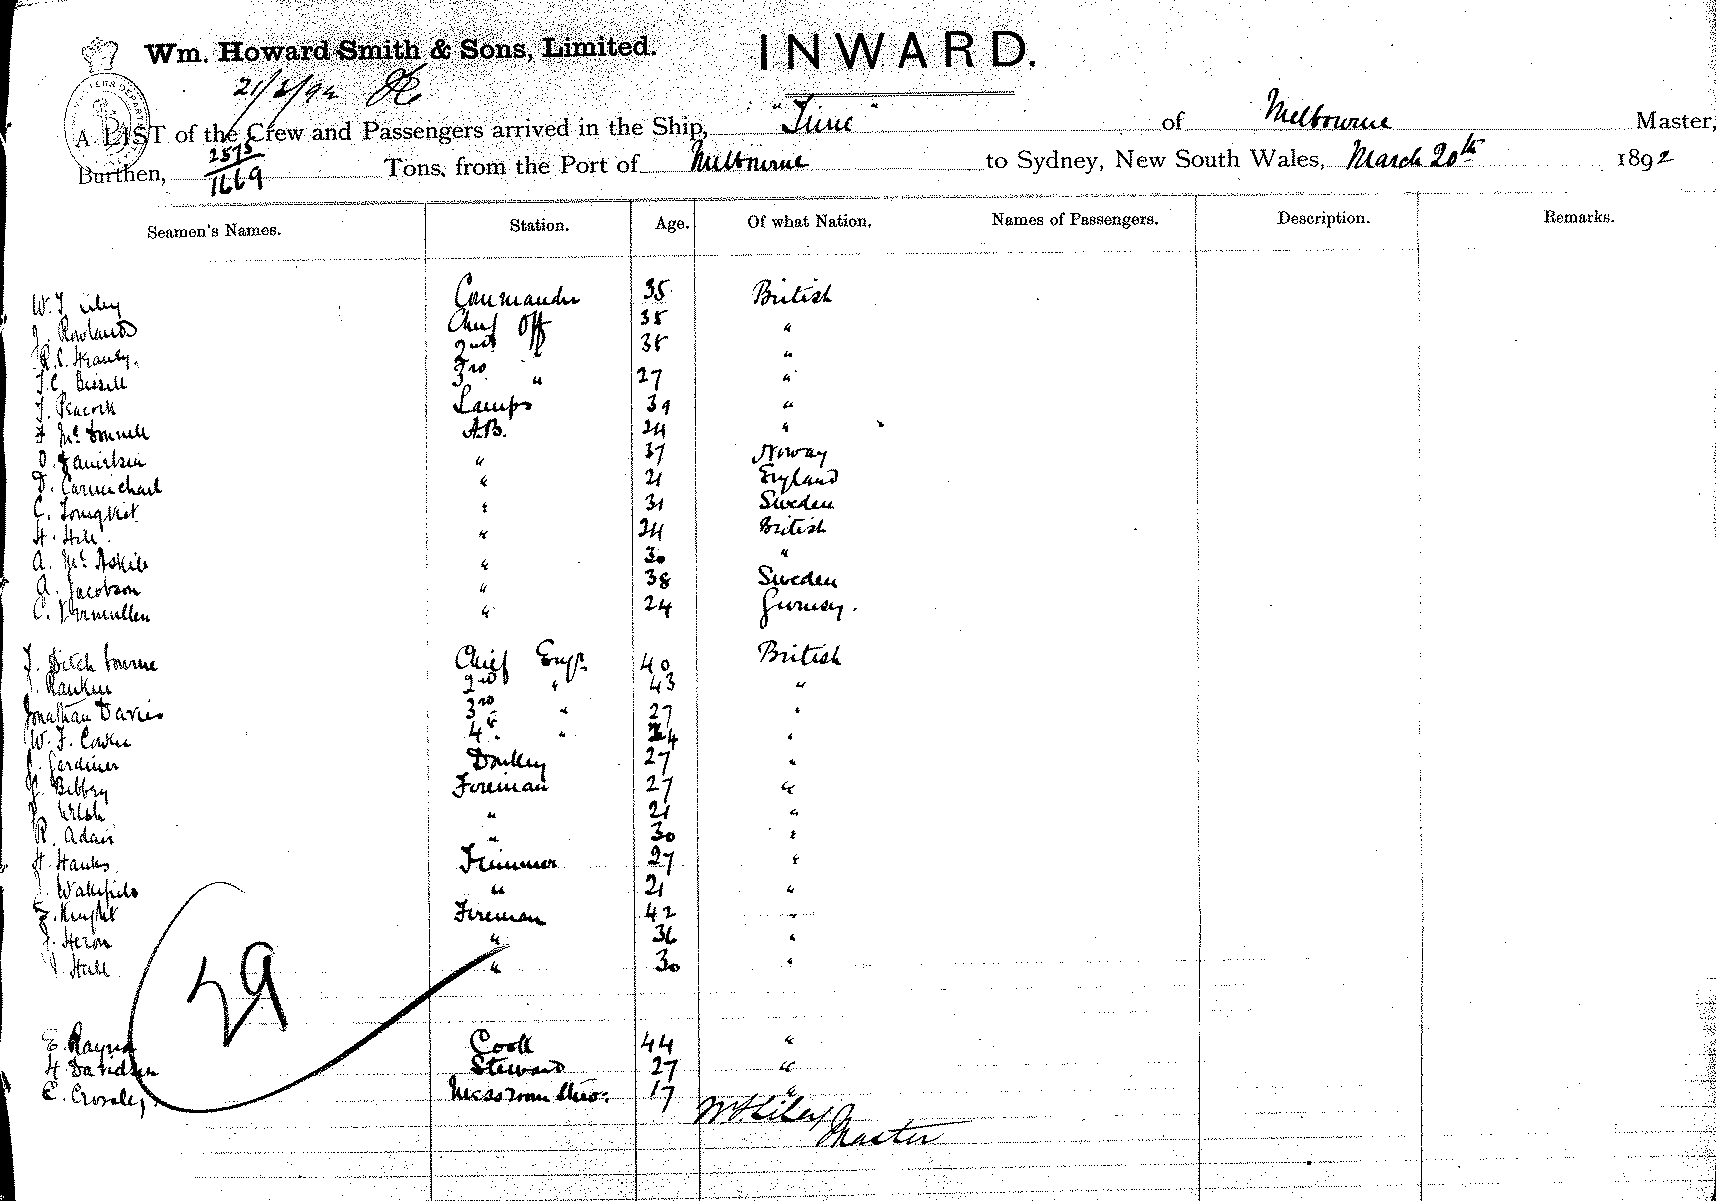 Wm. Howard Smith & Sons, Limited.
INWARD.
21/3/92
A LIST of the Crew and Passengers arrived in the Ship, " " of Melbourne Master,
Burthen, 2575/1669 Tons, from the Port of Melbourne to Sydney, New South Wales, March 20th 1892
Seamen's Names. Station. Age. Of what Nation. Names of Passengers. Description. Remarks.
W. T. Commander 35 British
J. Rowlands Chief Off 38 "
R. C. 2nd " 38 "
T. C. Bissell 3rd " 27 "
J. Peacock Lamps 39 "
Mc Donnell A.B. 24 "
O. Danielsen " 37 Norway
D. Carmichael " 21 England
C. " 31 Sweden
H. Hill " 24 British
A. Mc Askill " 30 "
A. Jacobson " 38 Sweden
C. Vermullen " 24 Gurnsey.
T. Ditchbourne Chief Engr. 40 British
Rankin 2nd " 43 "
Jonathan Davies 3rd " 27 "
W. F. Cowen 4 " 24 "
Gardiner Donkey 27 "
Bibbey Fireman 27 "
Welsh " 21 "
R. Adair " 30 "
H. Hanks Trimmer 27 "
Wakefield " 21 "
Knight Fireman 42 "
J. Heron " 36 "
Hall " 30 "
29
E. Rayner Cook 44 "
H. Davidson Steward 27 "
E. Crossley. Messroom Stew: 17 "
Master